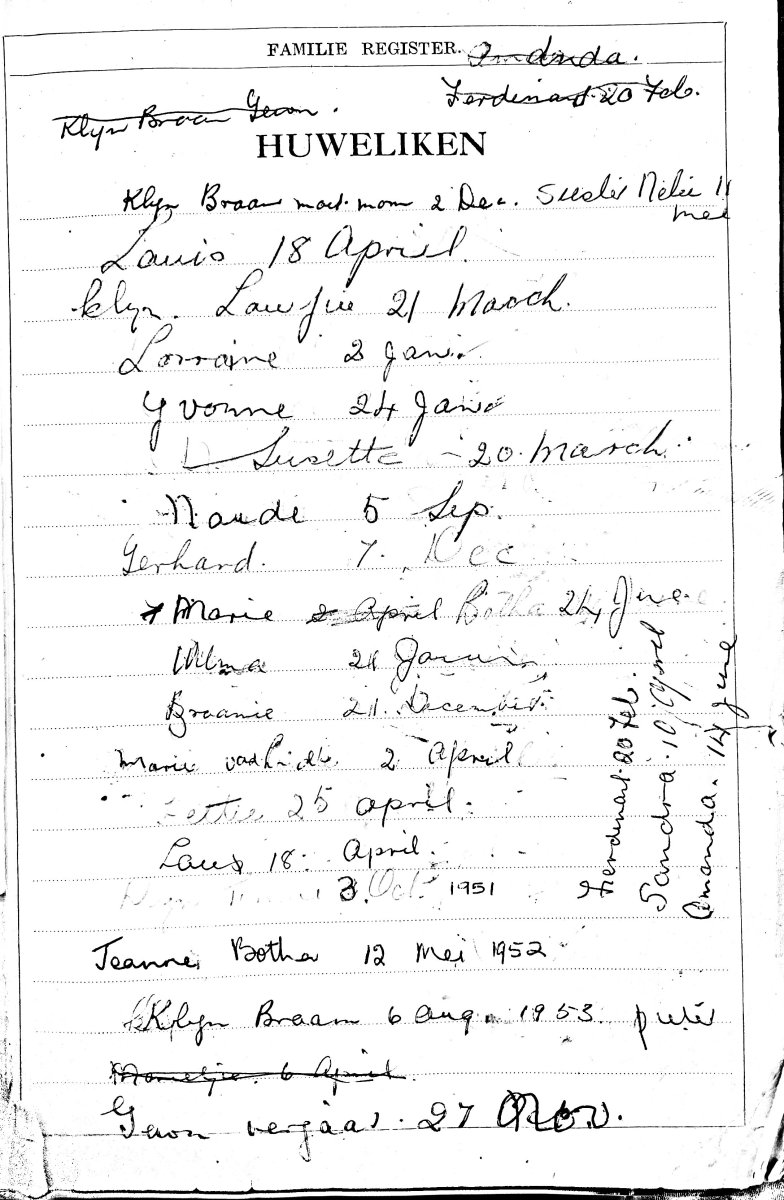 FAMILIE REGISTER.
Amanda.
Ferdinand 20 Feb.
Klyn Braam Gewn.
HUWELIKEN
Klyn Braam 2 Dec. Nelie 11 mei
Louis 18 April.
klyn. 21 March.
Lorraine 2 Jan.
Yvonne 24 Jan
Susette - 20 March.
Naude 5 Sep.
Gerhard. 7. Dec
Marie 2 April Botha 24 June
Wilma 21
Braamie 21 December
Marie 2 April
Lettie 25 april.
Louis 18. April.
3. Oct. 1951
Jeanne Botha 12 Mei 1952
Klyn Braam 6 Aug. 1953
6 April
verjaar. 27 Nov.
Ferdinand. 20 Feb.
Sandra. 10 April
Amanda. 14 June